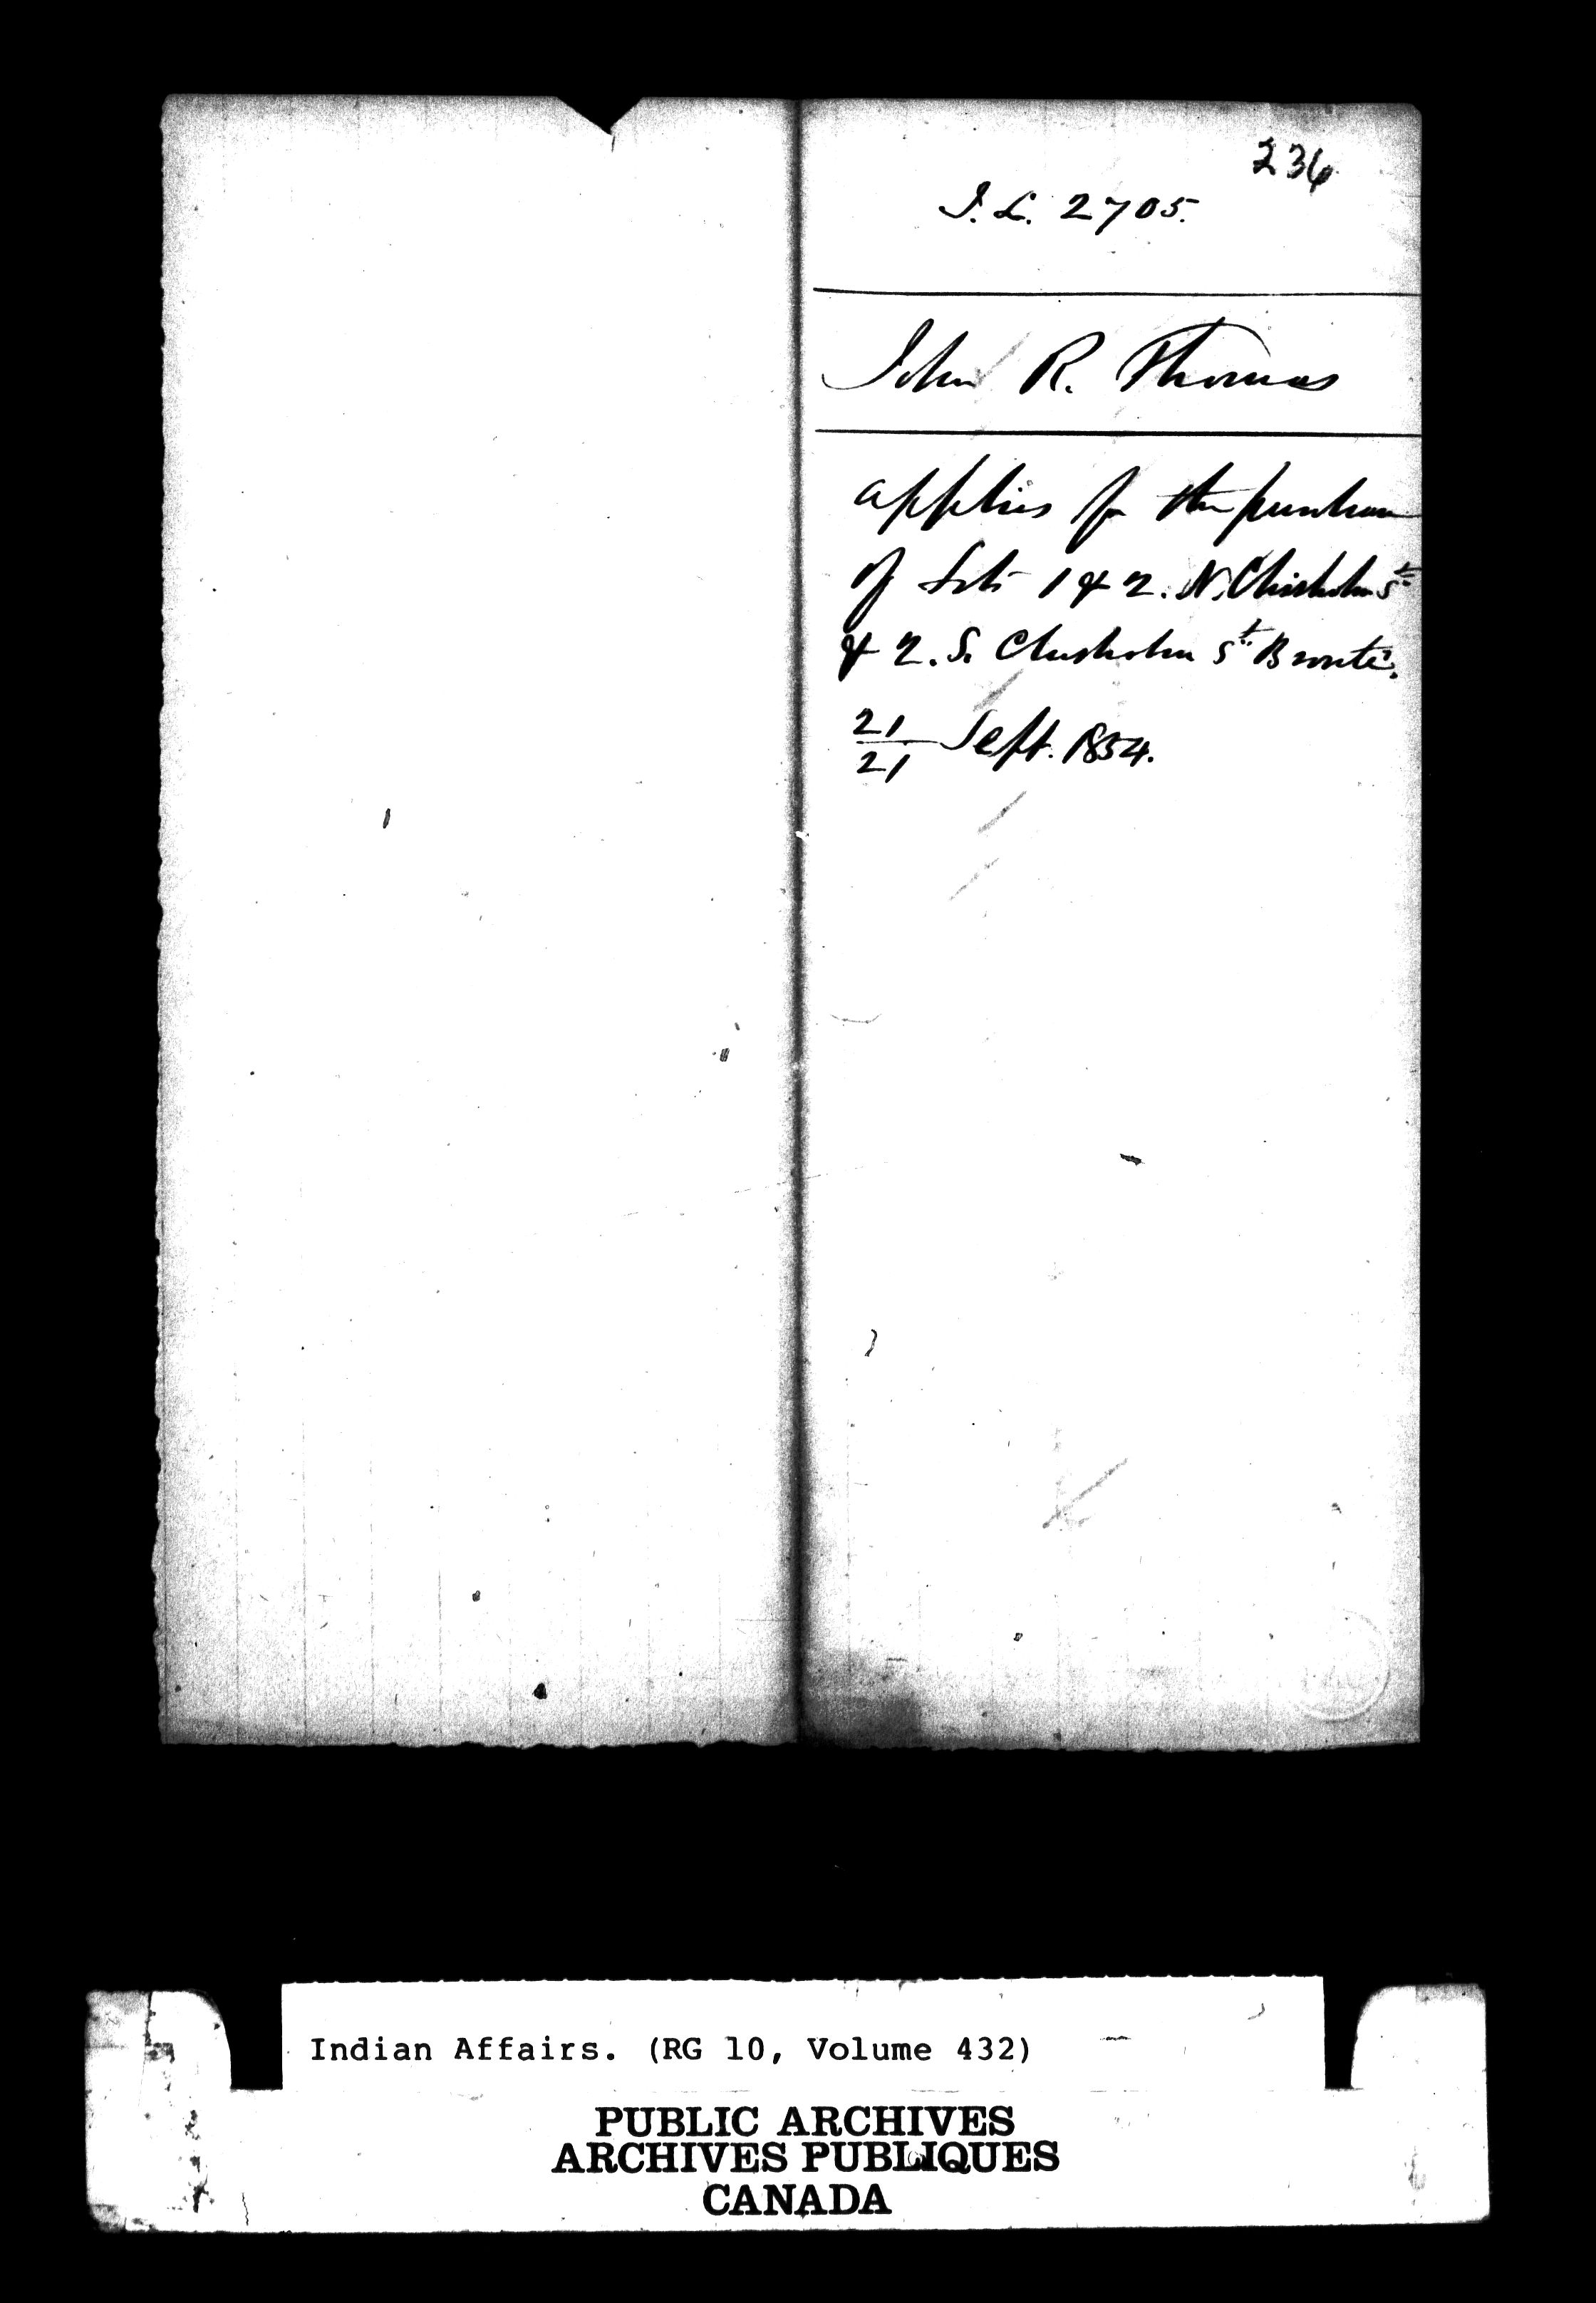 236
I. L. 2705.
John R. Thomas
applies for the purchase
of Lots 1 & 2. N. Chisholm St
& 2. S. Chisholm St Bronte.
21/21 Sept. 1854.
Indian Affairs. (RG 10, Volume 432)
PUBLIC ARCHIVES
ARCHIVES PUBLIQUES
CANADA